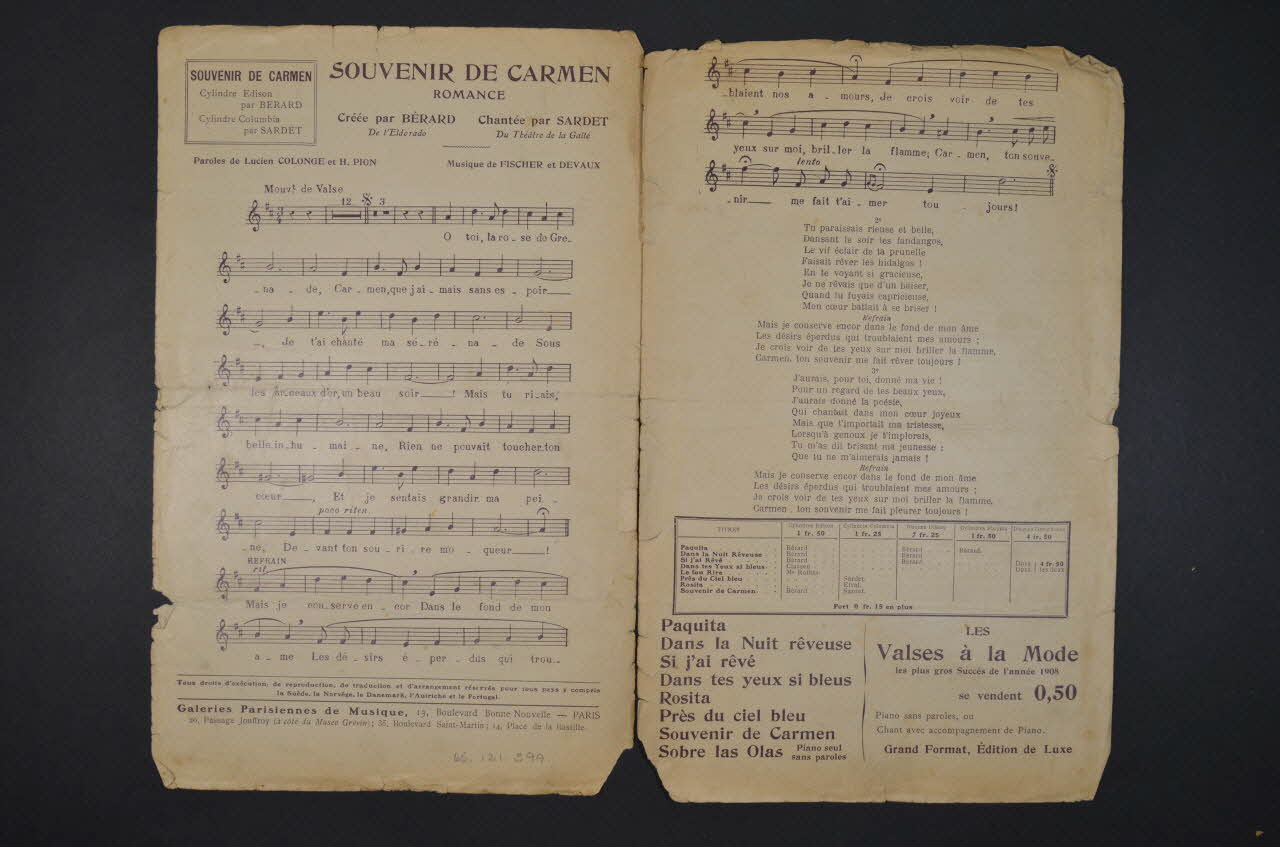 SOUVENIR DE CARMEN
Cylindre Edison
par BERARD
Cylindre Columbia
par SARDET
SOUVENIR DE CARMEN
ROMANCE
Créée par BÉRARD
De l'Eldorado
Chantée par SARDET
Du Théâtre de la Gaîté
Paroles de Lucien COLONGE et H. PION
Musique de FISCHER et DEVAUX
Mouvt. de Valse
12 3
O toi, la ro_se de Gre_
_na _ de, Car_men, que j'ai_mais sans es_poir
_, Je t'ai chanté ma sé_ré_na_de Sous
les arceaux d'or, un beau soir! Mais tu ri_ais,
belle in_hu_mai_ne, Rien ne pouvait toucher ton
cœur, Et je sentais grandir ma pei_
poco riten.
_ne, De_vant ton sou_ri_re mo_queur!
REFRAIN
rit
Mais je con_serve en_cor Dans le fond de mon
a_me Les dé_sirs é_per_dus qui trou_
Tous droits d'exécution, de reproduction, de traduction et d'arrangement réservés pour tous pays y compris
la Suède, la Norvège, le Danemark, l'Autriche et le Portugal.
Galeries Parisiennes de Musique, 13, Boulevard Bonne-Nouvelle — PARIS
20, Passage Jouffroy (à côté du Musée Grévin); 38, Boulevard Saint-Martin; 14, Place de la Bastille.
65.121.399
_blaient nos a_mours, Je crois voir de tes
yeux sur moi, bril_ler la flamme; Car_men, ton souve_
lento
_nir me fait t'ai_mer tou_jours!
2e
Tu paraissais rieuse et belle,
Dansant le soir tes fandangos,
Le vif éclair de ta prunelle
Faisait rêver les hidalgos !
En te voyant si gracieuse,
Je ne rêvais que d'un baiser,
Quand tu fuyais capricieuse,
Mon cœur battait à se briser !
Refrain
Mais je conserve encor dans le fond de mon âme
Les désirs éperdus qui troublaient mes amours ;
Je crois voir de tes yeux sur moi briller la flamme,
Carmen, ton souvenir me fait rêver toujours !
3e
J'aurais, pour toi, donné ma vie !
Pour un regard de tes beaux yeux,
J'aurais donné la poésie,
Qui chantait dans mon cœur joyeux
Mais que t'importait ma tristesse,
Lorsqu'à genoux je t'implorais,
Tu m'as dit brisant ma jeunesse :
Que tu ne m'aimerais jamais !
Refrain
Mais je conserve encor dans le fond de mon âme
Les désirs éperdus qui troublaient mes amours ;
Je crois voir de tes yeux sur moi briller la flamme,
Carmen, ton souvenir me fait pleurer toujours !
TITRES
Cylindres Edison
1 fr. 50
Cylindres Columbia
1 fr. 25
Disques Odéon
7 fr. 25
1 fr. 50
4 fr. 50
Paquita Bérard Bérard Bérard.
Dans la Nuit Rêveuse Bérard Bérard
Si j'ai Rêvé Bérard Bérard
Dans tes Yeux si bleus
Le fou Rire
Près du Ciel bleu Sardet.
Rosita
Souvenir de Carmen Bérard Sardet.
Port 0 fr. 15 en plus
Paquita
Dans la Nuit rêveuse
Si j'ai rêvé
Dans tes yeux si bleus
Rosita
Près du ciel bleu
Souvenir de Carmen
Sobre las Olas Piano seul
sans paroles
LES
Valses à la Mode
les plus gros Succès de l'année 1908
se vendent 0,50
Piano sans paroles, ou
Chant avec accompagnement de Piano.
Grand Format, Édition de Luxe